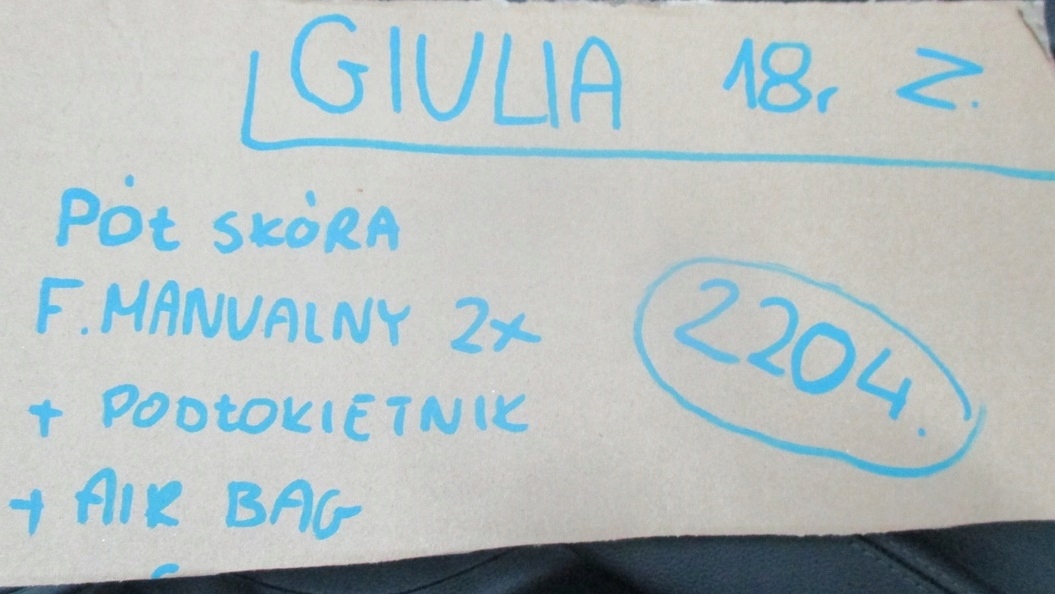 GIULIA 18r Z.
PÓŁ SKÓRA
F. MANUALNY 2x
2204.
+ PODŁOKIETNIK
+ AIR BAG